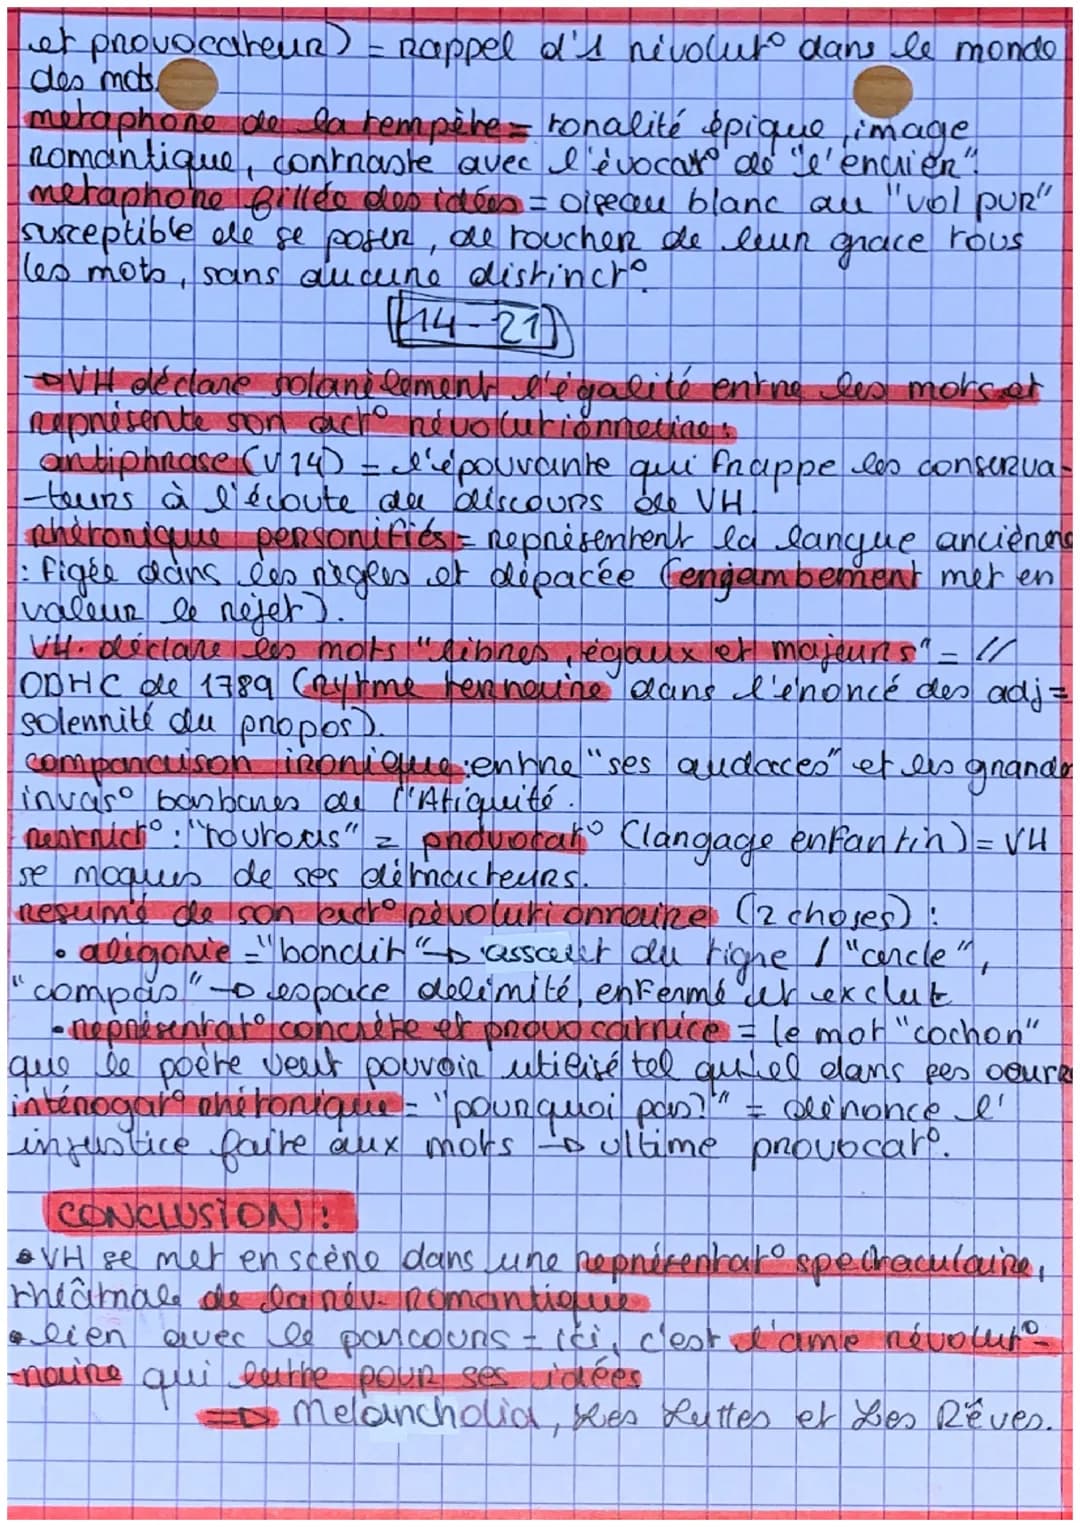 et provocateur) = rappel d'1 révolut° dans le monde
des mots.
métaphore de la tempête = tonalité épique, image
romantique, contraste avec l'évocat° de "l'encrier".
métaphore fillée des idées = oiseau blanc au "vol pur"
susceptible de se poser, de toucher de leur grace tous
les mots, sans aucune distinct°
[14-21]
→ VH déclare solanèlement l'égalité entre les mots et
représente son act° révolutionnaire :
antiphrase (v14) = l'épouvante qui frappe les conserva-
-teurs à l'écoute du discours de VH.
rhétorique personifiés = représentent la langue anciènne
: figée dans les règles et dépacée (enjambement met en
valeur le rejet).
VH. déclare les mots "libres, égaux et majeurs" = //
DDHC de 1789 (rytme ternaire dans l'énoncé des adj =
solennité du propos).
comparaison ironique : entre "ses audaces" et les grands
invas° barbares de l'Atiquité.
restrict° : "toutous" = provocat° (langage enfantin) = VH
se moques de ses détracteurs.
resumé de son act° révolutionnaire (2 choses) :
• aligorie = "bondit" → assaut du tigre / "cercle",
"compas" → espace delimité, enfermé et exclut
• représentat° concrète et provocatrice = le mot "cochon"
que le poète veut pouvoir utilisé tel quel dans ses oeuvre
intérogat° rhétorique = "pourquoi pas?" = dénonce l'
injustice faite aux mots → ultime provocat°.
CONCLUSION :
• VH se met en scène dans une représentat° spectaculaire,
théâtrale de la rév. romantique
• lien avec le parcours = ici, c'est l'ame révolut°-
-naire qui lutte pour ses idées
⇒ Melancholia, Les Luttes et Les Rêves.